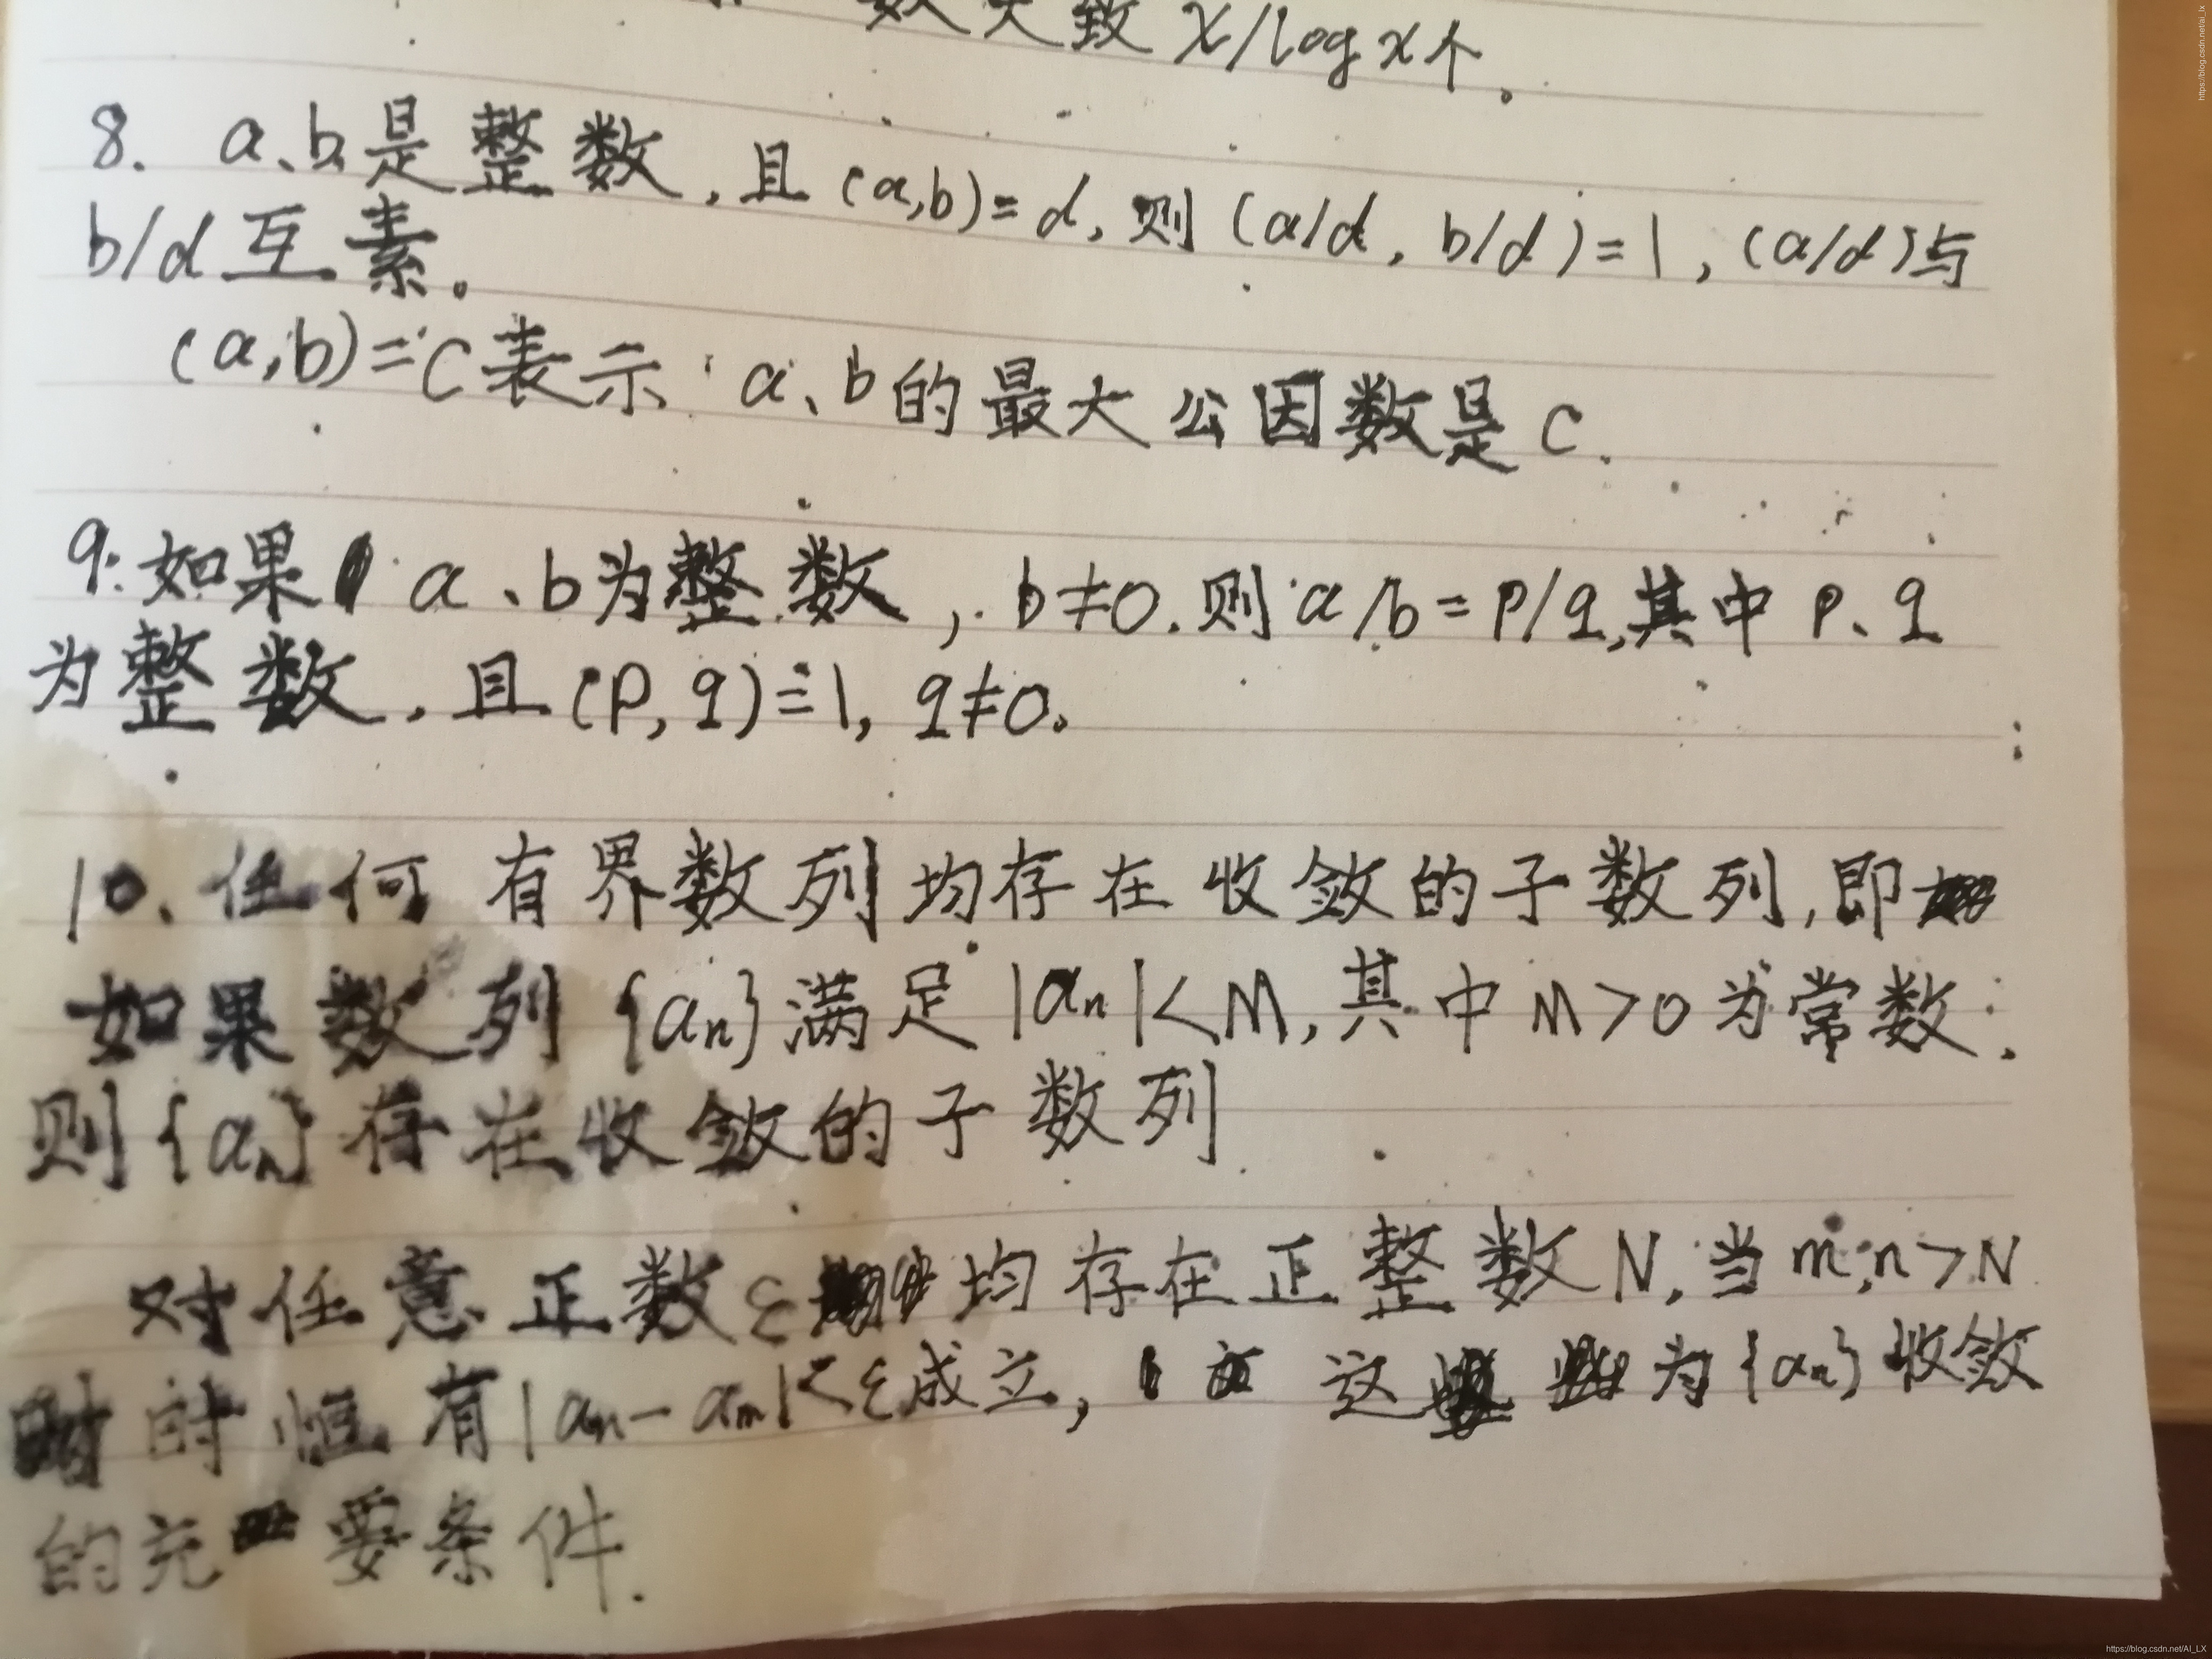 数大致 x/log x个。
8. a、b是整数,且(a,b)=d,则(a/d, b/d)=1,(a/d)与
b/d互素。
(a,b)=C表示 a、b的最大公因数是C.
9.如果 a、b为整数,b≠0.则a/b=P/q,其中P、q
为整数,且(P,q)=1, q≠0.
10.任何有界数列均存在收敛的子数列,即
如果数列{an}满足|an|<M,其中M>0为常数.
则{an}存在收敛的子数列
对任意正数ε均存在正整数N,当m,n>N
时恒有|an-am|<ε成立, 这 为{an}收敛
的充要条件.
https://blog.csdn.net/ai_lx
https://blog.csdn.net/AI_LX